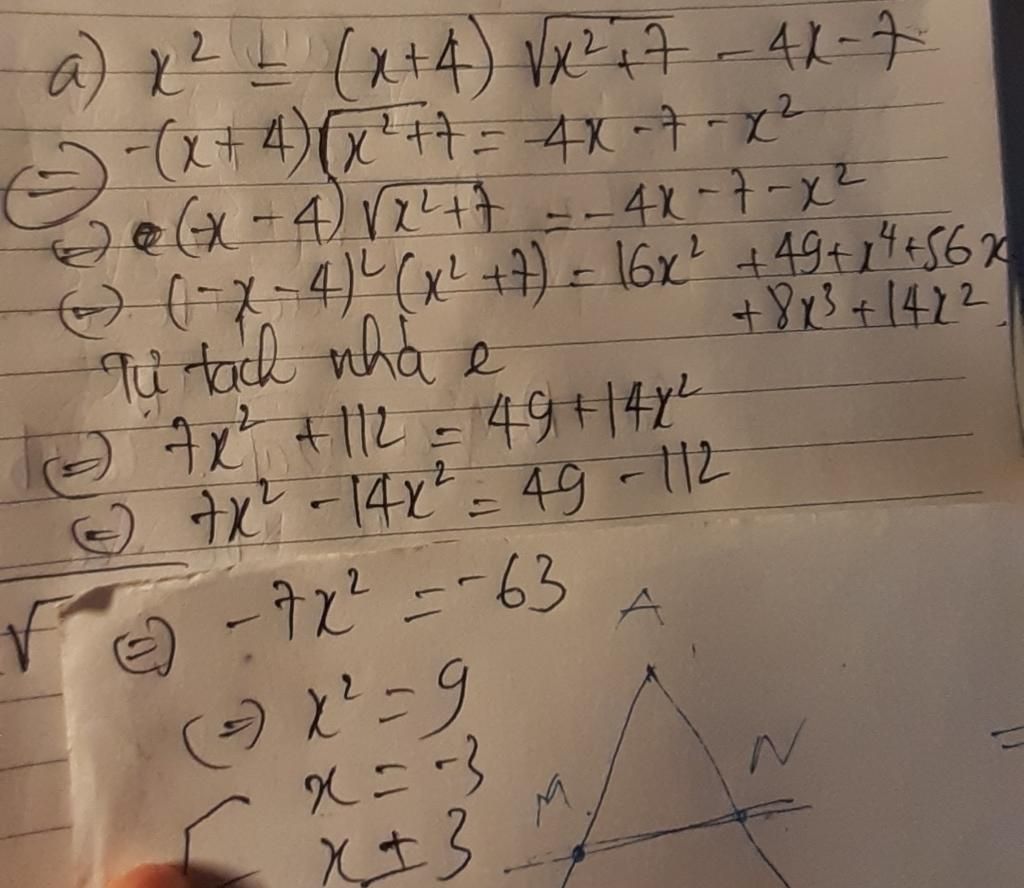 a) x² = (x+4) √x²+7 - 4x - 7
⇔ -(x+4)√x²+7 = -4x - 7 - x²
⇔ (-x-4)√x²+7 = -4x - 7 - x²
⇔ (-x-4)² (x²+7) = 16x² + 49 + x⁴ + 56x
+ 8x³ + 14x²
Tự tách nhà e
⇔ 7x² + 112 = 49 + 14x²
⇔ 7x² - 14x² = 49 - 112
√
⇔ -7x² = -63
A
⇔ x² = 9
N
=
x = -3
M
[ x = 3